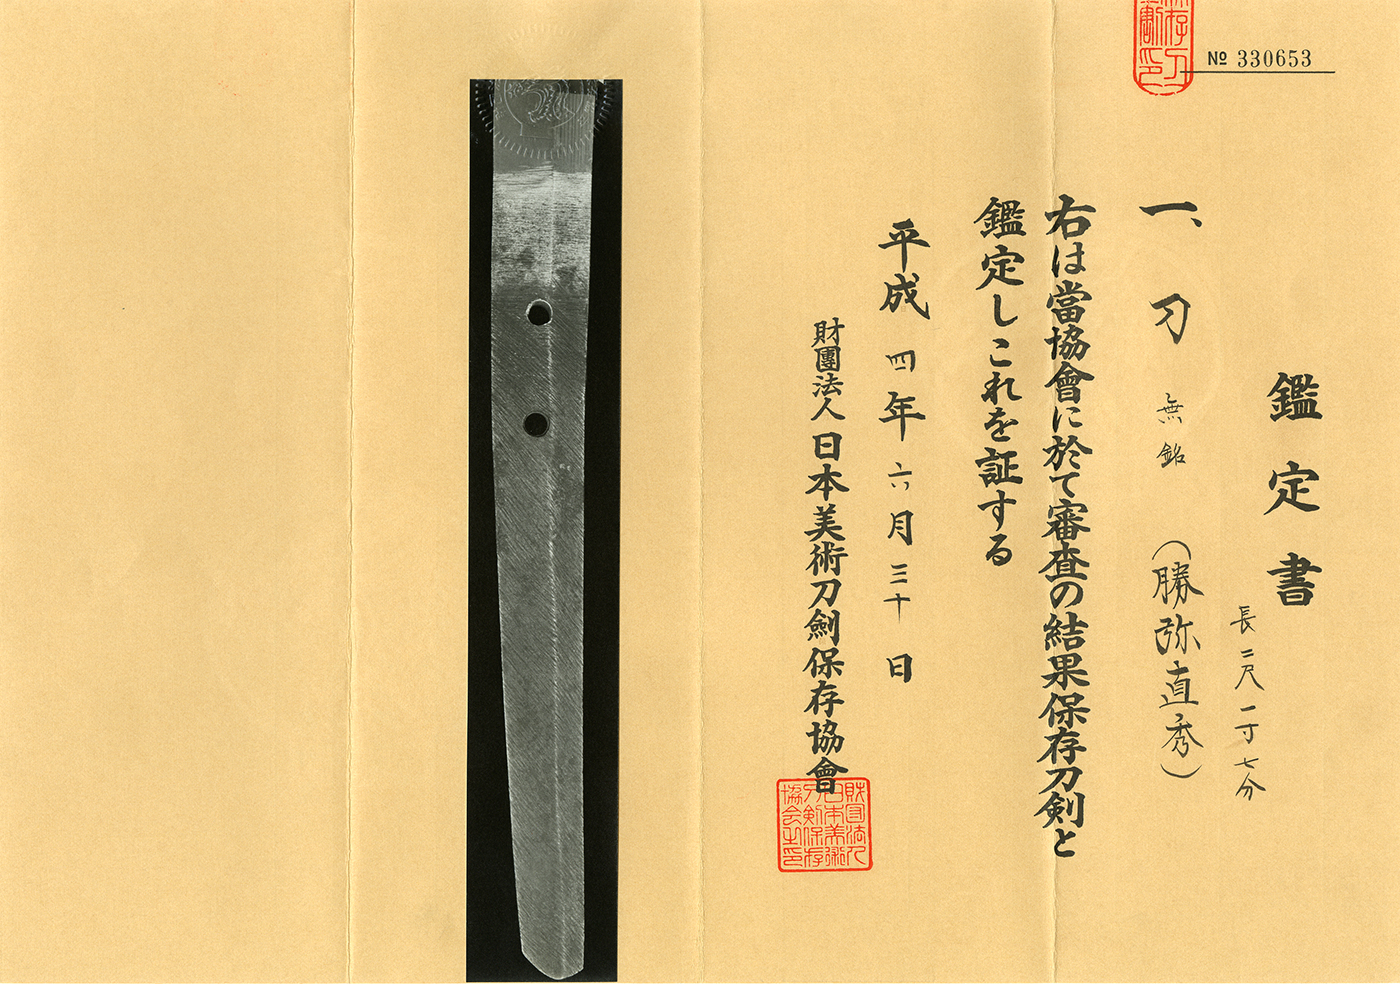 № 330653
鑑定書
長二尺一寸七分
一、刀 無銘 (勝弥直秀)
右は當協會に於て審査の結果保存刀剣と
鑑定しこれを証する
平成四年六月三十日
財團法人日本美術刀劍保存協會
財団法人
日本美術
刀剣保存
協会之印